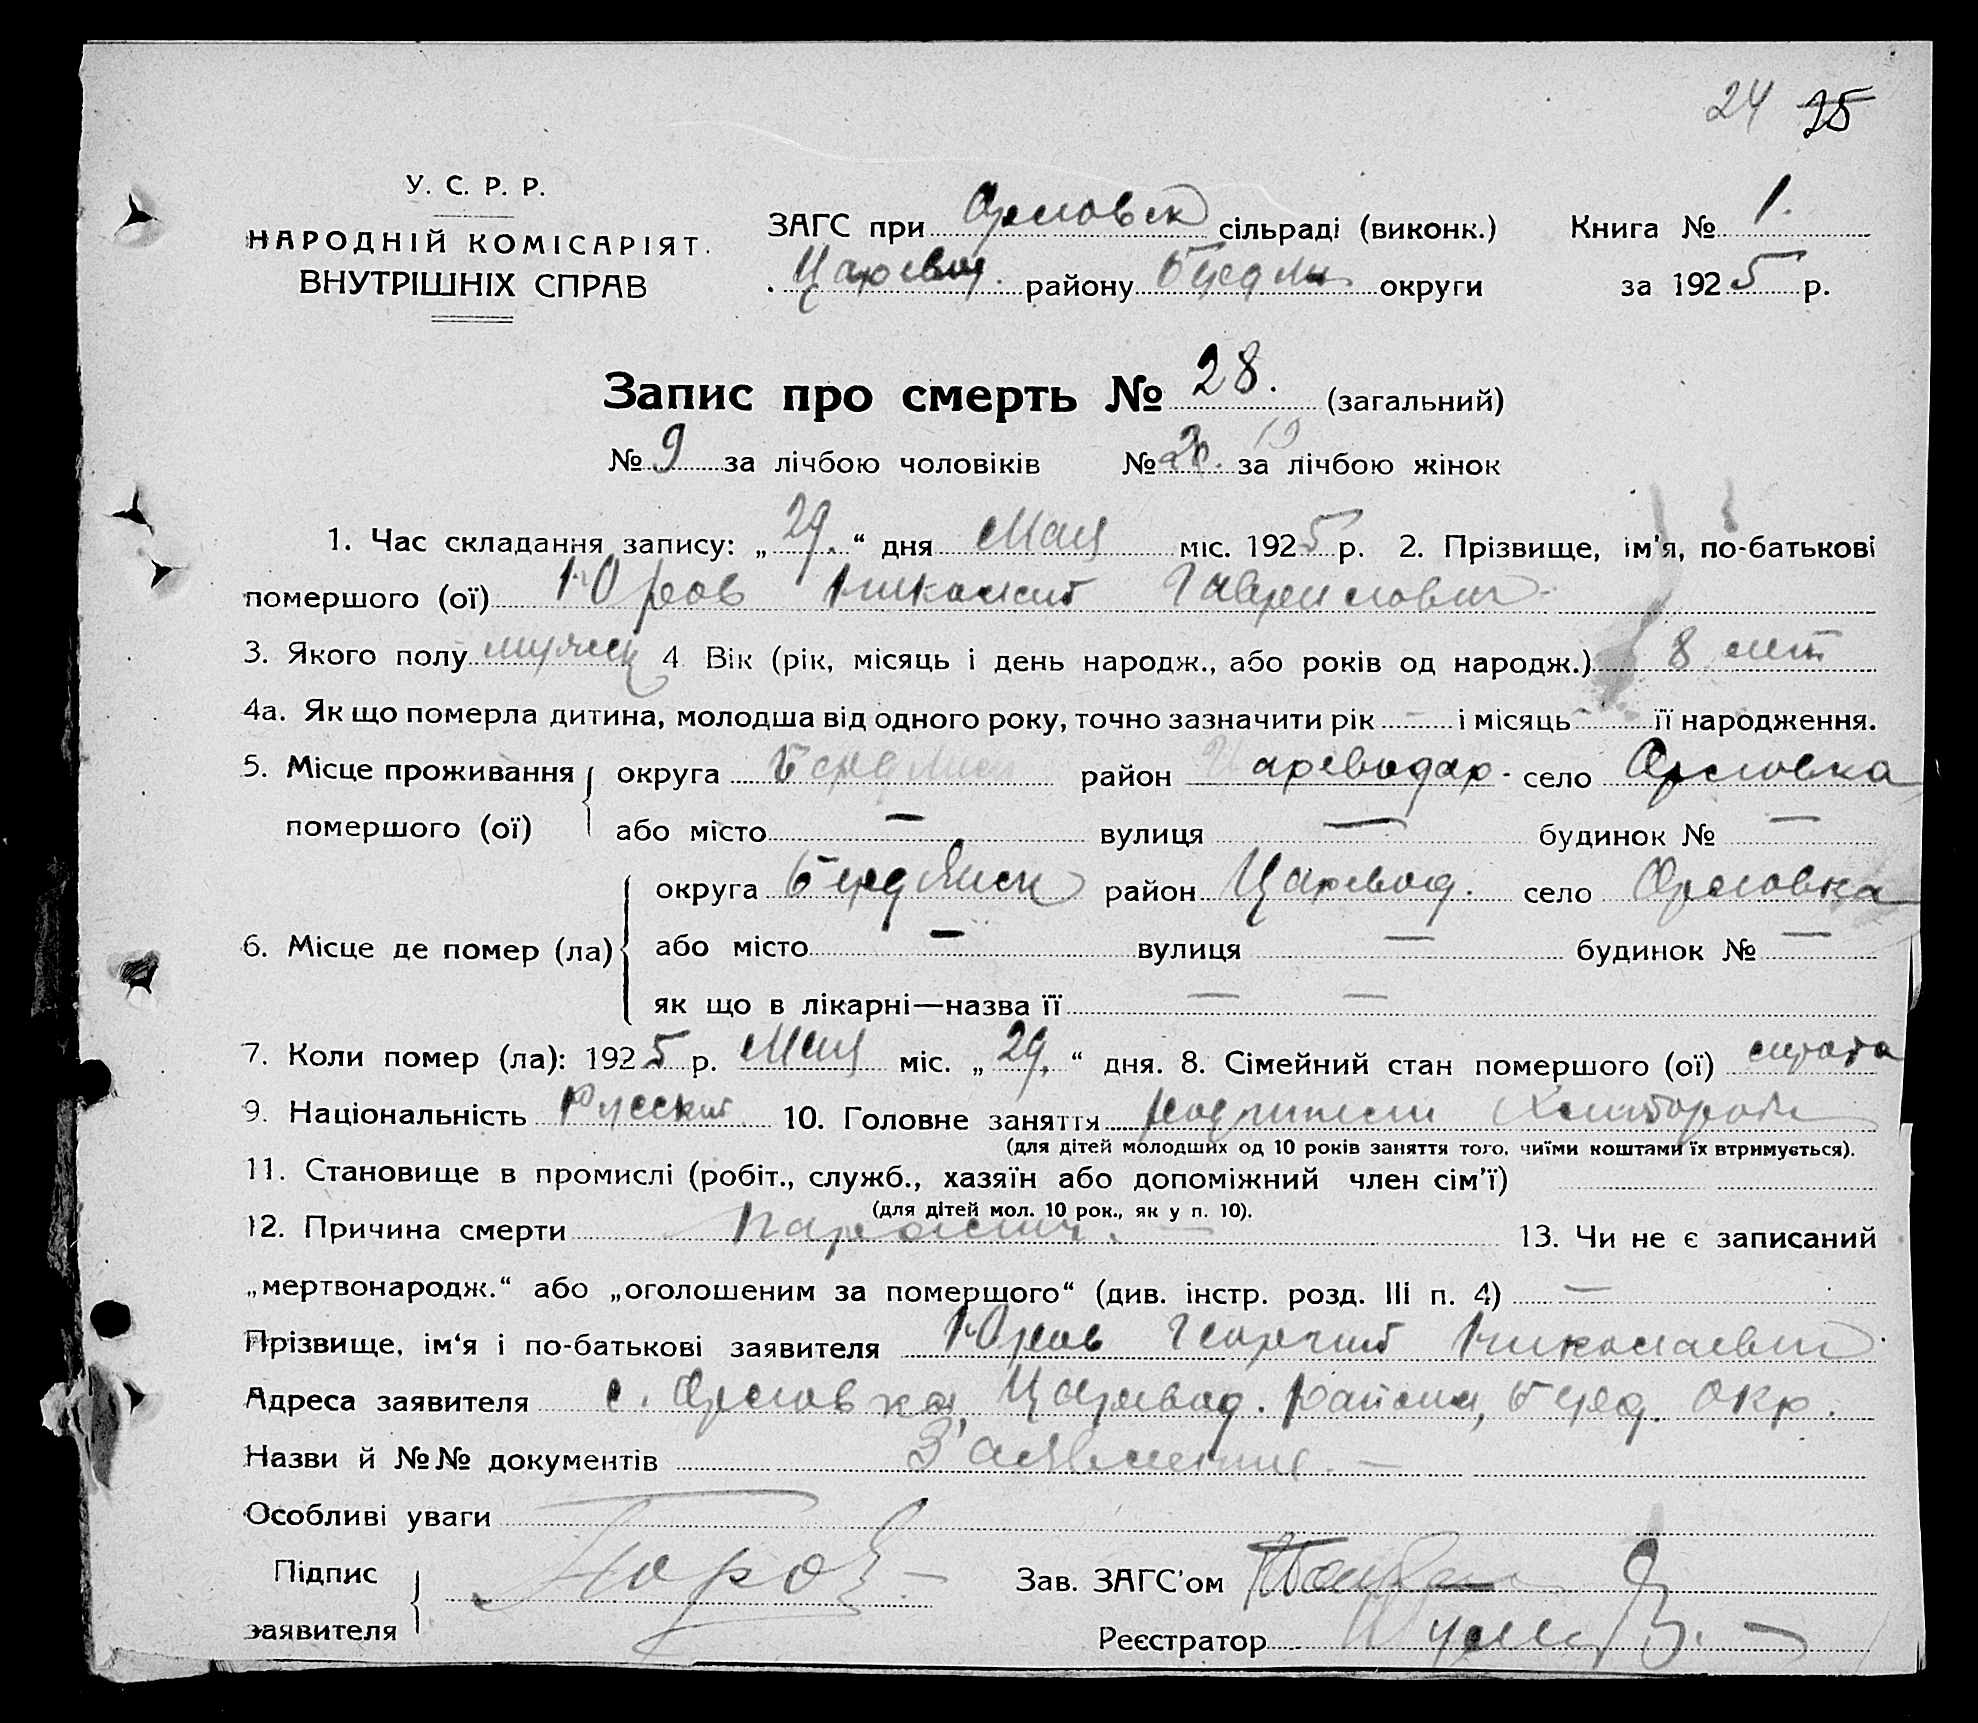 24 25
У. С. Р. Р.
НАРОДНІЙ КОМІСАРІЯТ.
ВНУТРІШНІХ СПРАВ
ЗАГС при Орловск сільраді (виконк.) Книга № 1.
Царевод. району Бердян округи за 1925 р.
Запис про смерть № 28. (загальний)
№ 9 за лічбою чоловіків № 19 за лічбою жінок
1. Час складання запису: „29.“ дня Мая міс. 1925 р. 2. Прізвище, ім'я, по-батькові
помершого (ої) Юров Гаврилович
3. Якого полу мужск 4. Вік (рік, місяць і день народж., або років од народж.) 8 лет
4а. Як що померла дитина, молодша від одного року, точно зазначити рік – і місяць – її народження.
5. Місце проживання округа Бердянск район Цареводар. село Орловка
помершого (ої) або місто — вулиця — будинок № —
округа Бердянск район Царевод. село Орловка
6. Місце де помер (ла) або місто — вулиця — будинок № —
як що в лікарні—назва її — —
7. Коли помер (ла): 1925 р. Мая міс. „29.“ дня. 8. Сімейний стан помершого (ої) сирота
9. Національність Русский 10. Головне заняття родители Хлебороби
(для дітей молодших од 10 років заняття того, чиїми коштами їх втримується).
11. Становище в промислі (робіт., служб., хазяїн або допоміжний член сім'ї)
(для дітей мол. 10 рок., як у п. 10).
12. Причина смерти — 13. Чи не є записаний
„мертвонародж.“ або „оголошеним за помершого“ (див. інстр. розд. III п. 4) —
Прізвище, ім'я і по-батькові заявителя Юров Георгий Николаевич
Адреса заявителя с. Орловка, Царевод. района, Берд. окр.
Назви й №№ документів —
Особливі уваги
Підпис
заявителя
Зав. ЗАГС'ом
Реєстратор